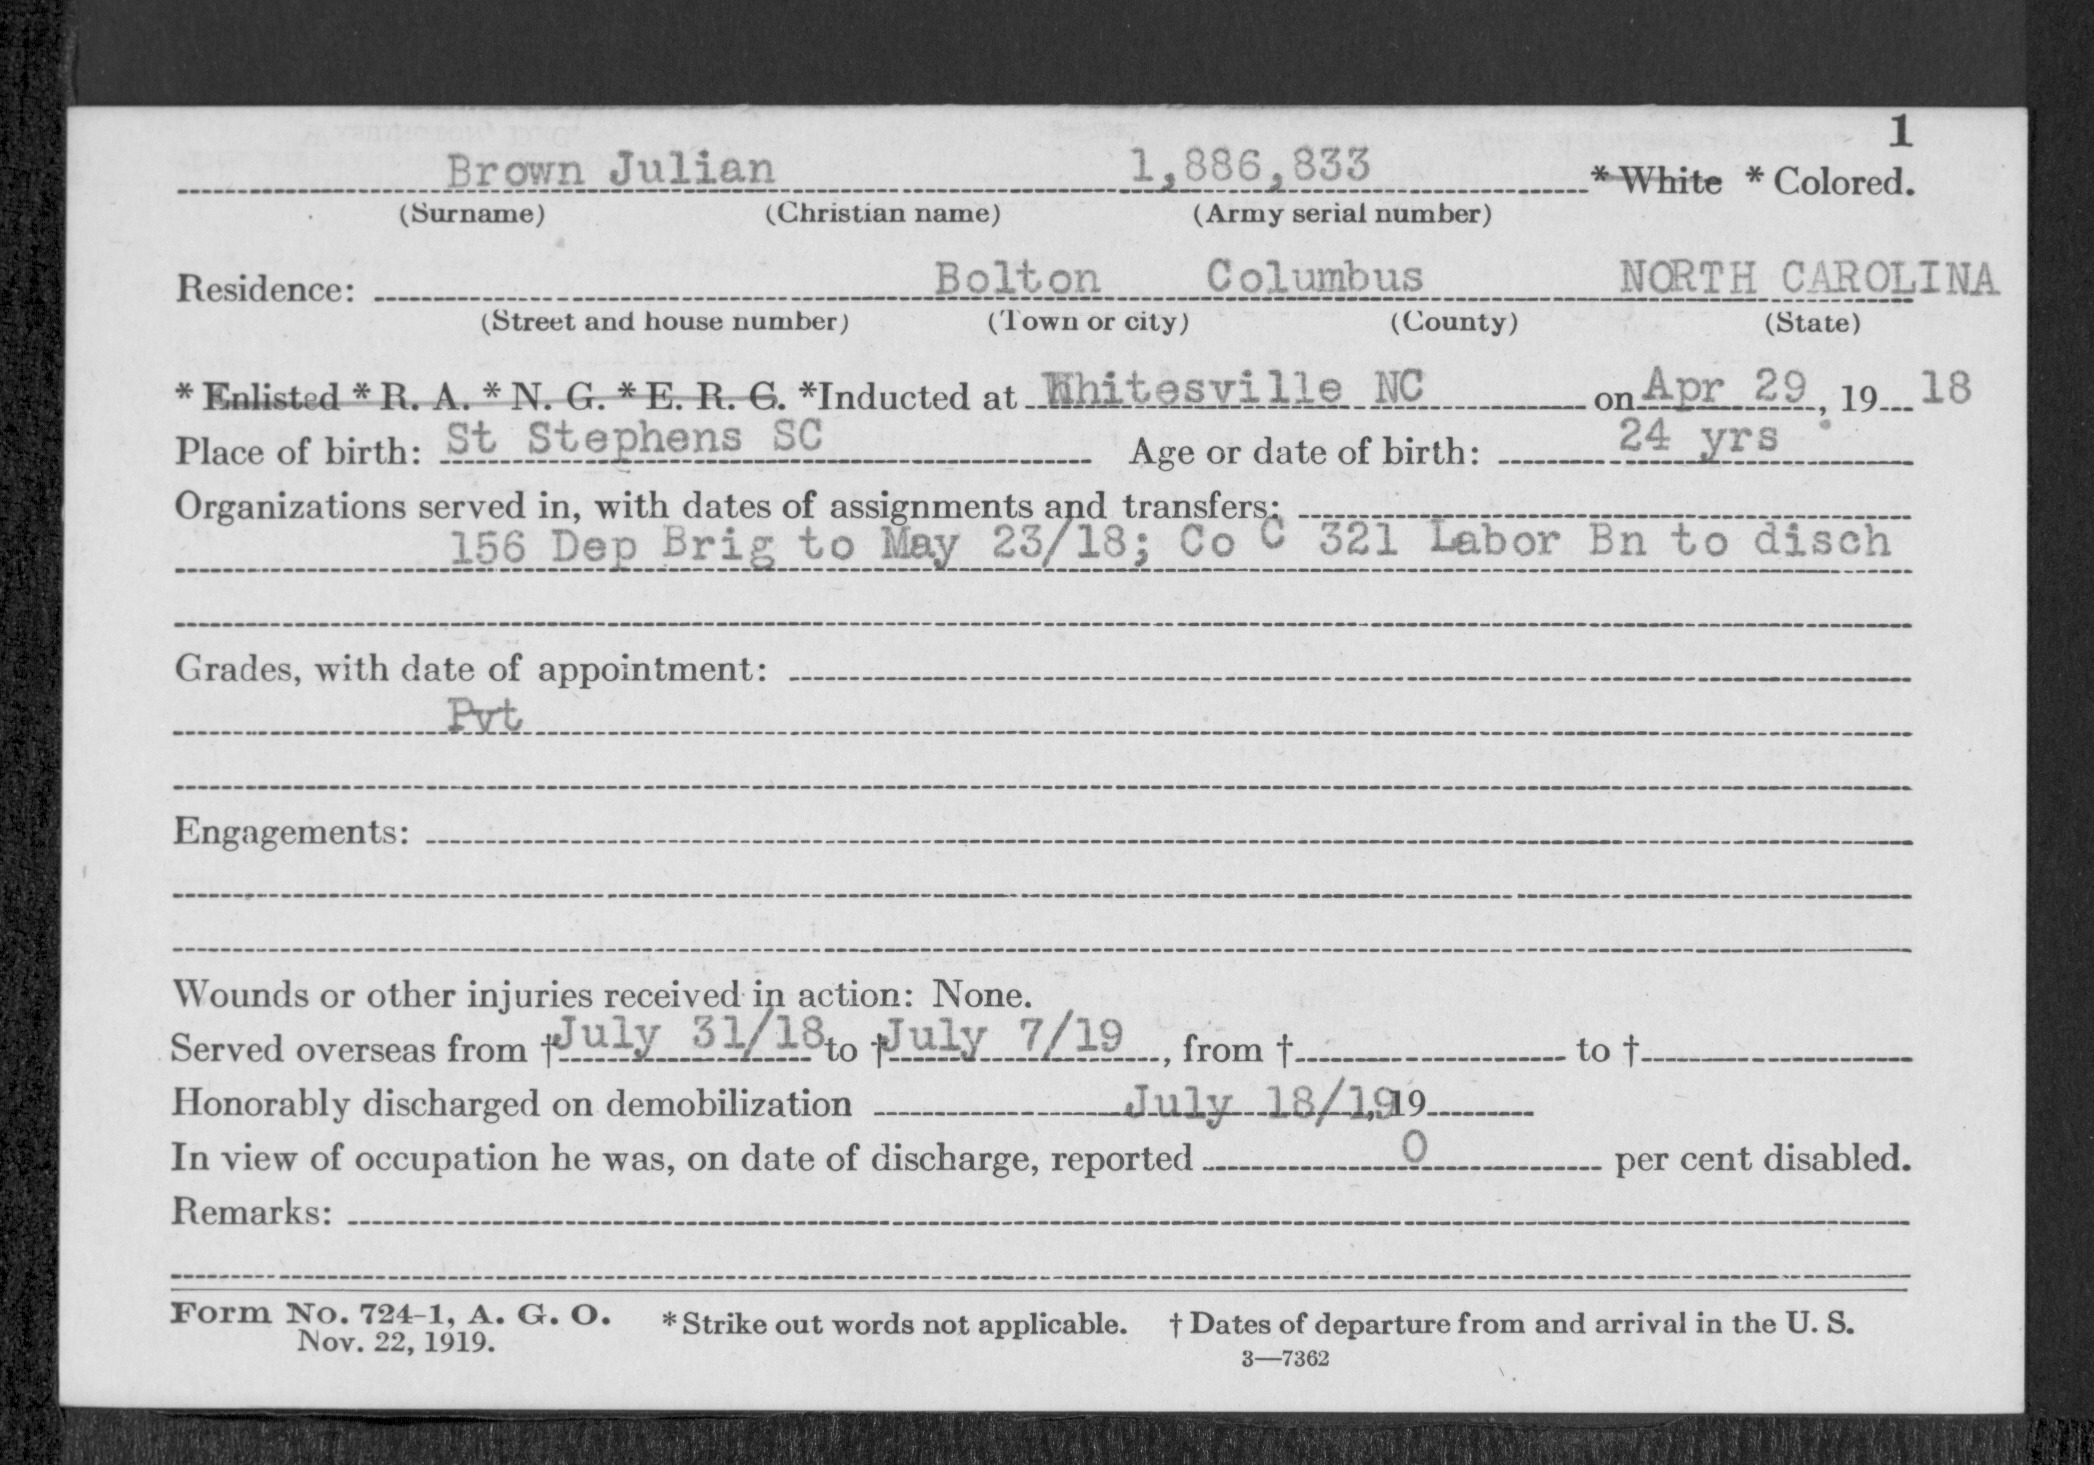 1
Brown Julian 1,886,833 * White * Colored.
(Surname) (Christian name) (Army serial number)
Residence: Bolton Columbus NORTH CAROLINA
(Street and house number) (Town or city) (County) (State)
* Enlisted * R. A. * N. G. * E. R. C. *Inducted at Whitesville NC on Apr 29, 19 18
Place of birth: St Stephens SC Age or date of birth: 24 yrs
Organizations served in, with dates of assignments and transfers:
156 Dep Brig to May 23/18; Co C 321 Labor Bn to disch
Grades, with date of appointment:
Pvt
Engagements:
Wounds or other injuries received in action: None.
Served overseas from † July 31/18 to † July 7/19, from † to †
Honorably discharged on demobilization July 18/19, 19
In view of occupation he was, on date of discharge, reported 0 per cent disabled.
Remarks:
Form No. 724-1, A. G. O. * Strike out words not applicable. † Dates of departure from and arrival in the U. S.
Nov. 22, 1919.
3—7362